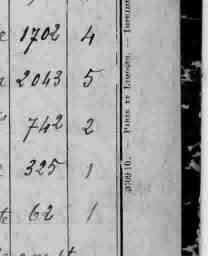 1702 4
2043 5
742 2
325 1
te 62 1
PARIS ET LIMOGES. — IMPRIM